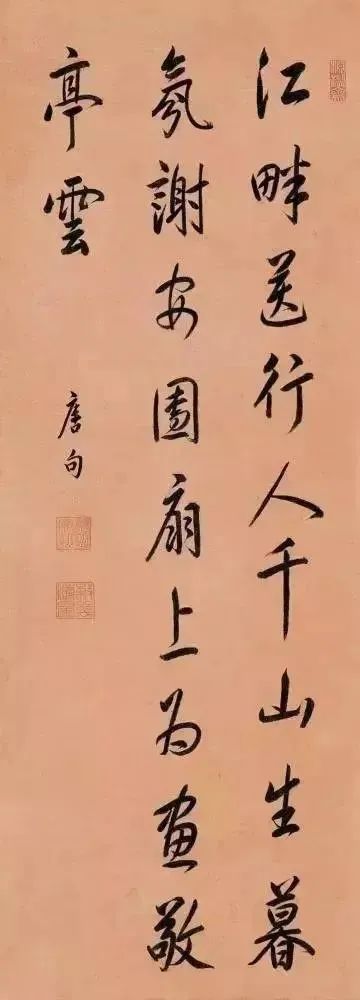 江畔送行人千山生暮
氛謝安團扇上为畫敬
亭雲
唐句